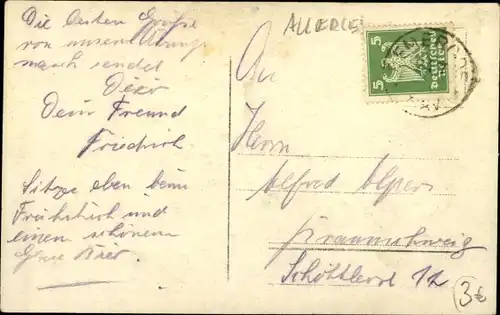 Die besten Grüße
von unserer Übungs
marsch sendet
Dein Freund
Friedrich.
Sitze eben beim
Frühstück und
einem schönen
Glase Bier.
ALLERLEI
5 5
Deutsches Reich
An
Herrn
Alfred Alpers
Braunschweig
12
3€